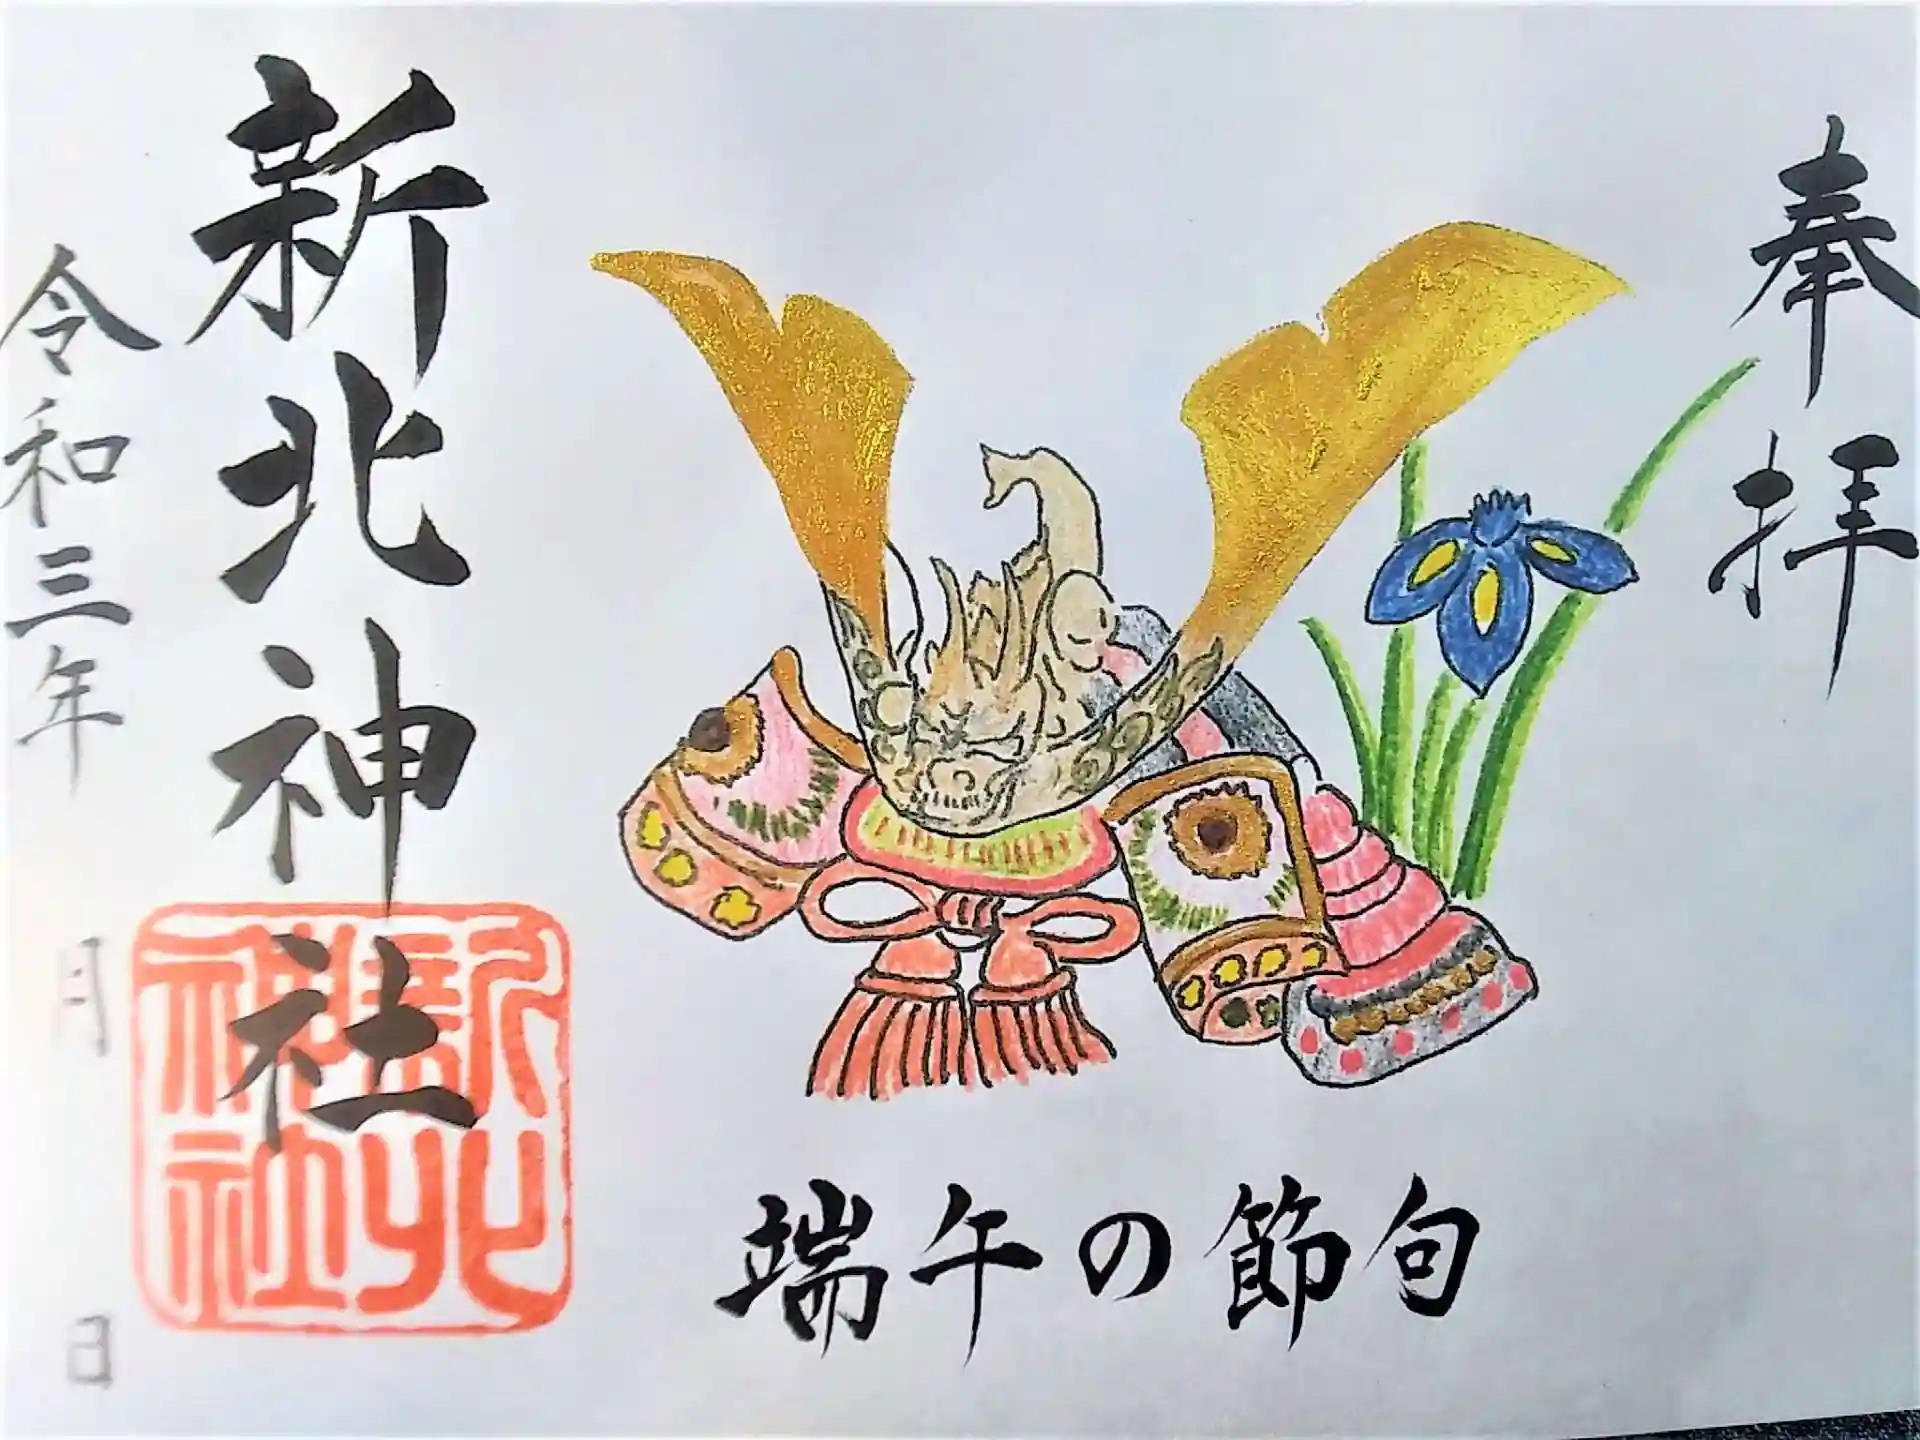 奉拝
端午の節句
新北神社
令和三年 月 日
新北神社